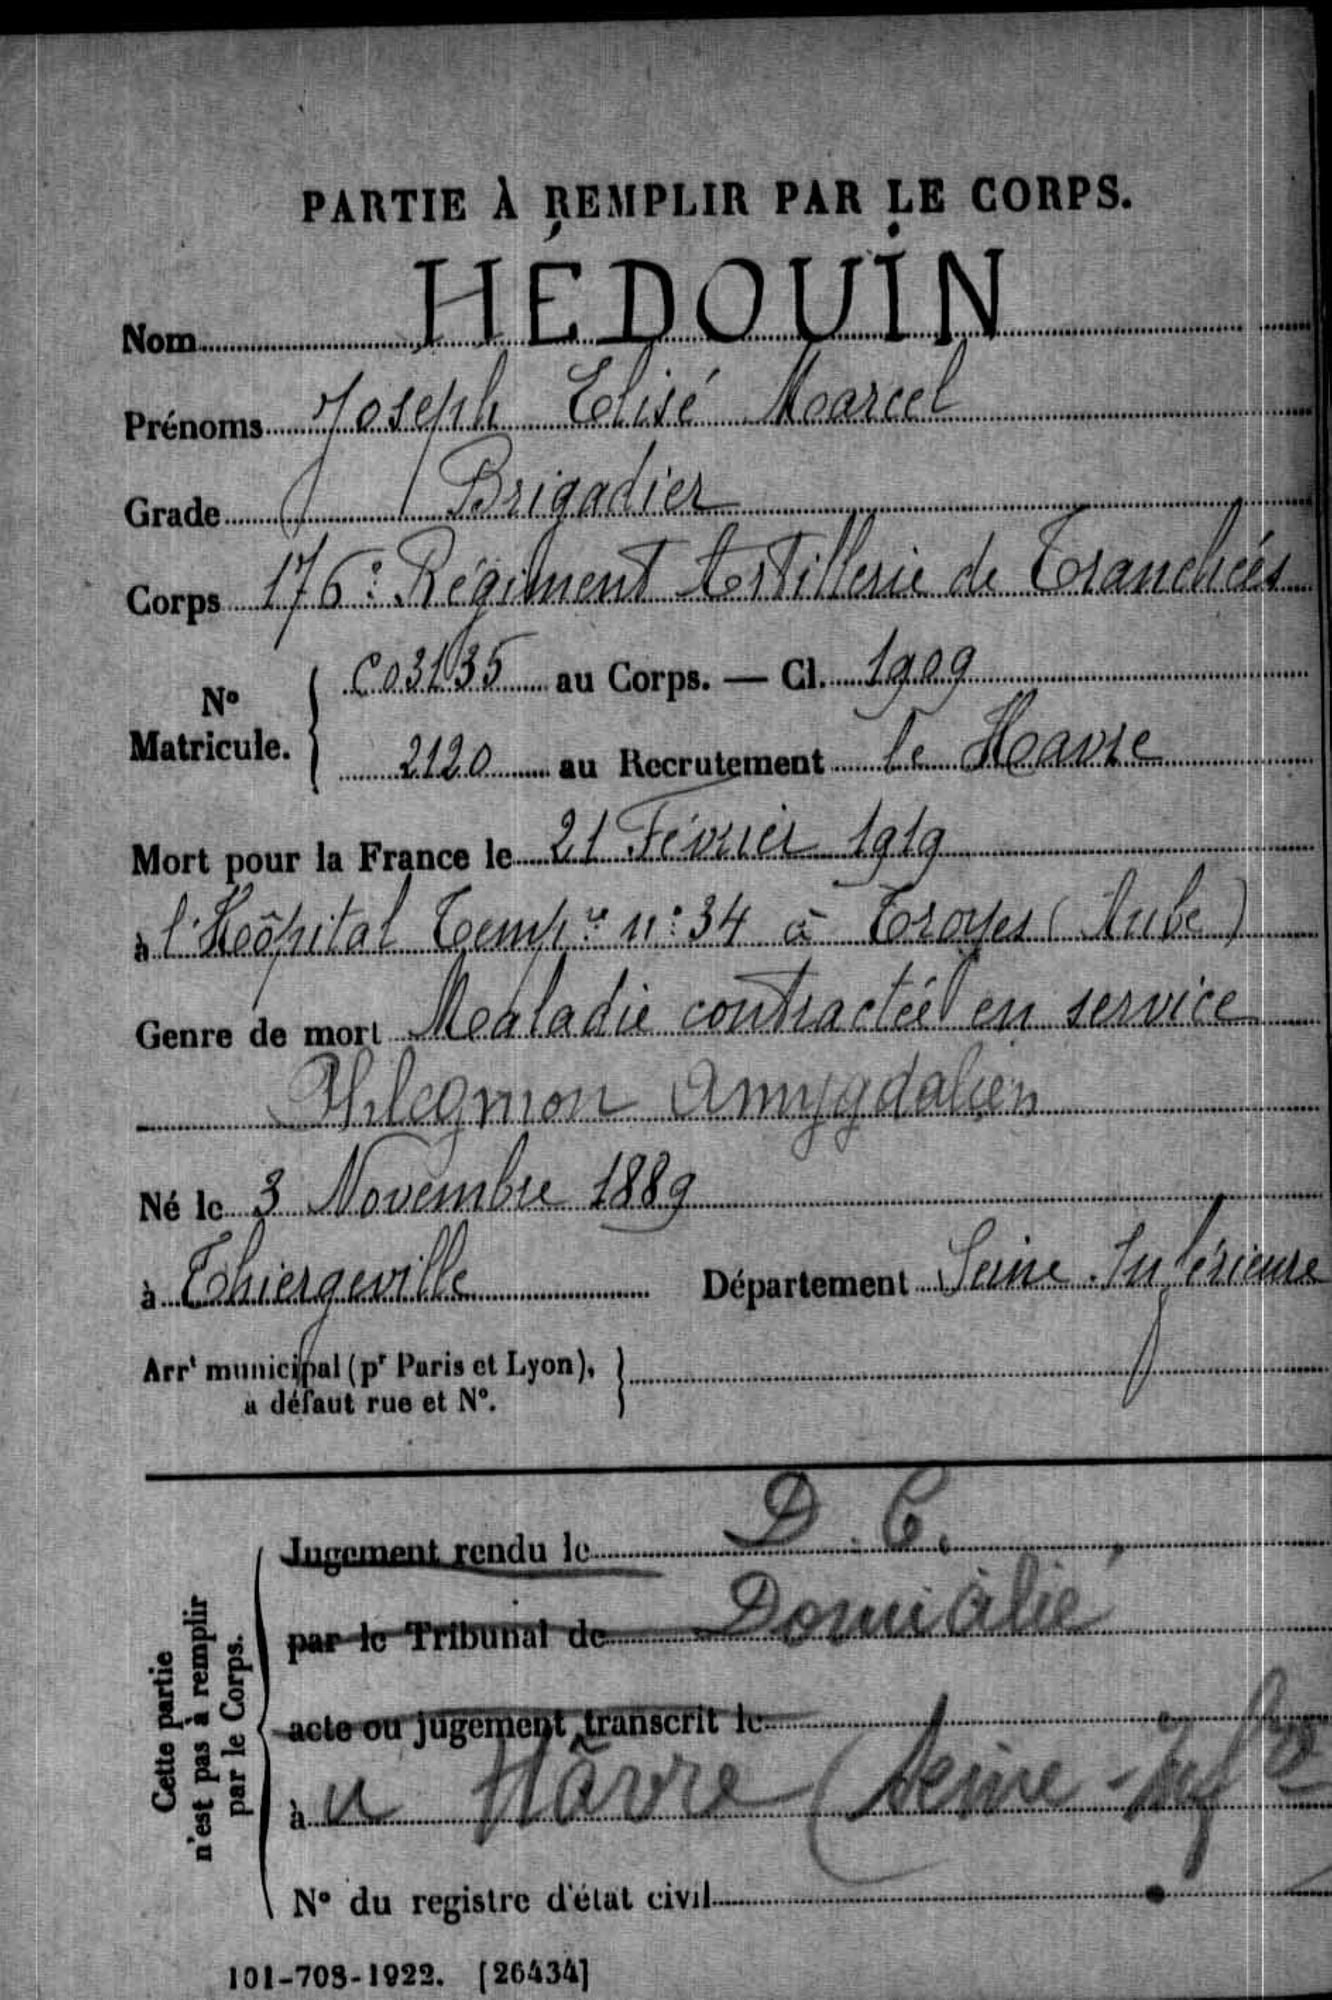 PARTIE À REMPLIR PAR LE CORPS.
Nom HÉDOUIN
Prénoms Joseph Elisé Marcel
Grade Brigadier
Corps 176e Régiment Artillerie de Tranchées
No Matricule. { C03135 au Corps. — Cl. 1909
2120 au Recrutement le Havre
Mort pour la France le 21 Février 1919
à l'Hôpital Tempre n° 34 à Troyes (Aube)
Genre de mort Maladie contractée en service
Phlegmon Amygdalien
Né le 3 Novembre 1889
à Thiergeville Département Seine Inférieure
Arrt municipal (pr Paris et Lyon),
a défaut rue et No.
Cette partie
n'est pas à remplir
par le Corps.
Jugement rendu le D. C.
par le Tribunal de Domicilié
acte ou jugement transcrit le
à u Hâvre (Seine-Infre
No du registre d'état civil
101-708-1922. [26434]